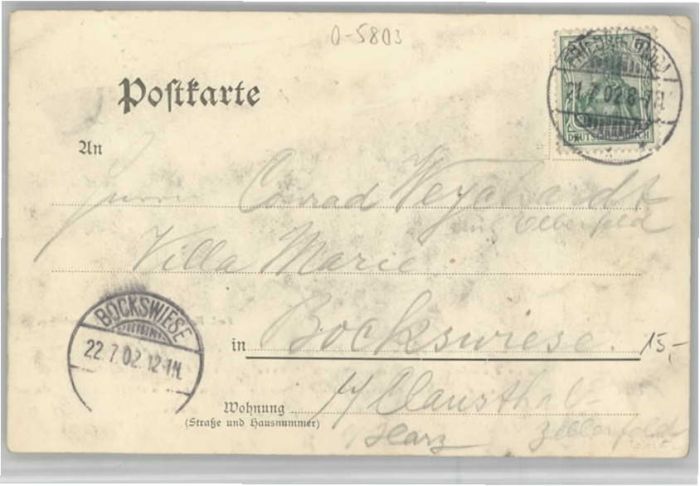 0-5803
Postkarte
FRIEDRICHRODA
21.7.02.8-9N.
DEUTSCHES REICH
An
Herrn Conrad Weychardt
aus Elberfeld
Villa Marie
BOCKSWIESE
22.7.02.12-1N.
in Bockswiese. 15,-
Wohnung b/ Clausthal-
(Straße und Hausnummer)
Harz Zellerfeld